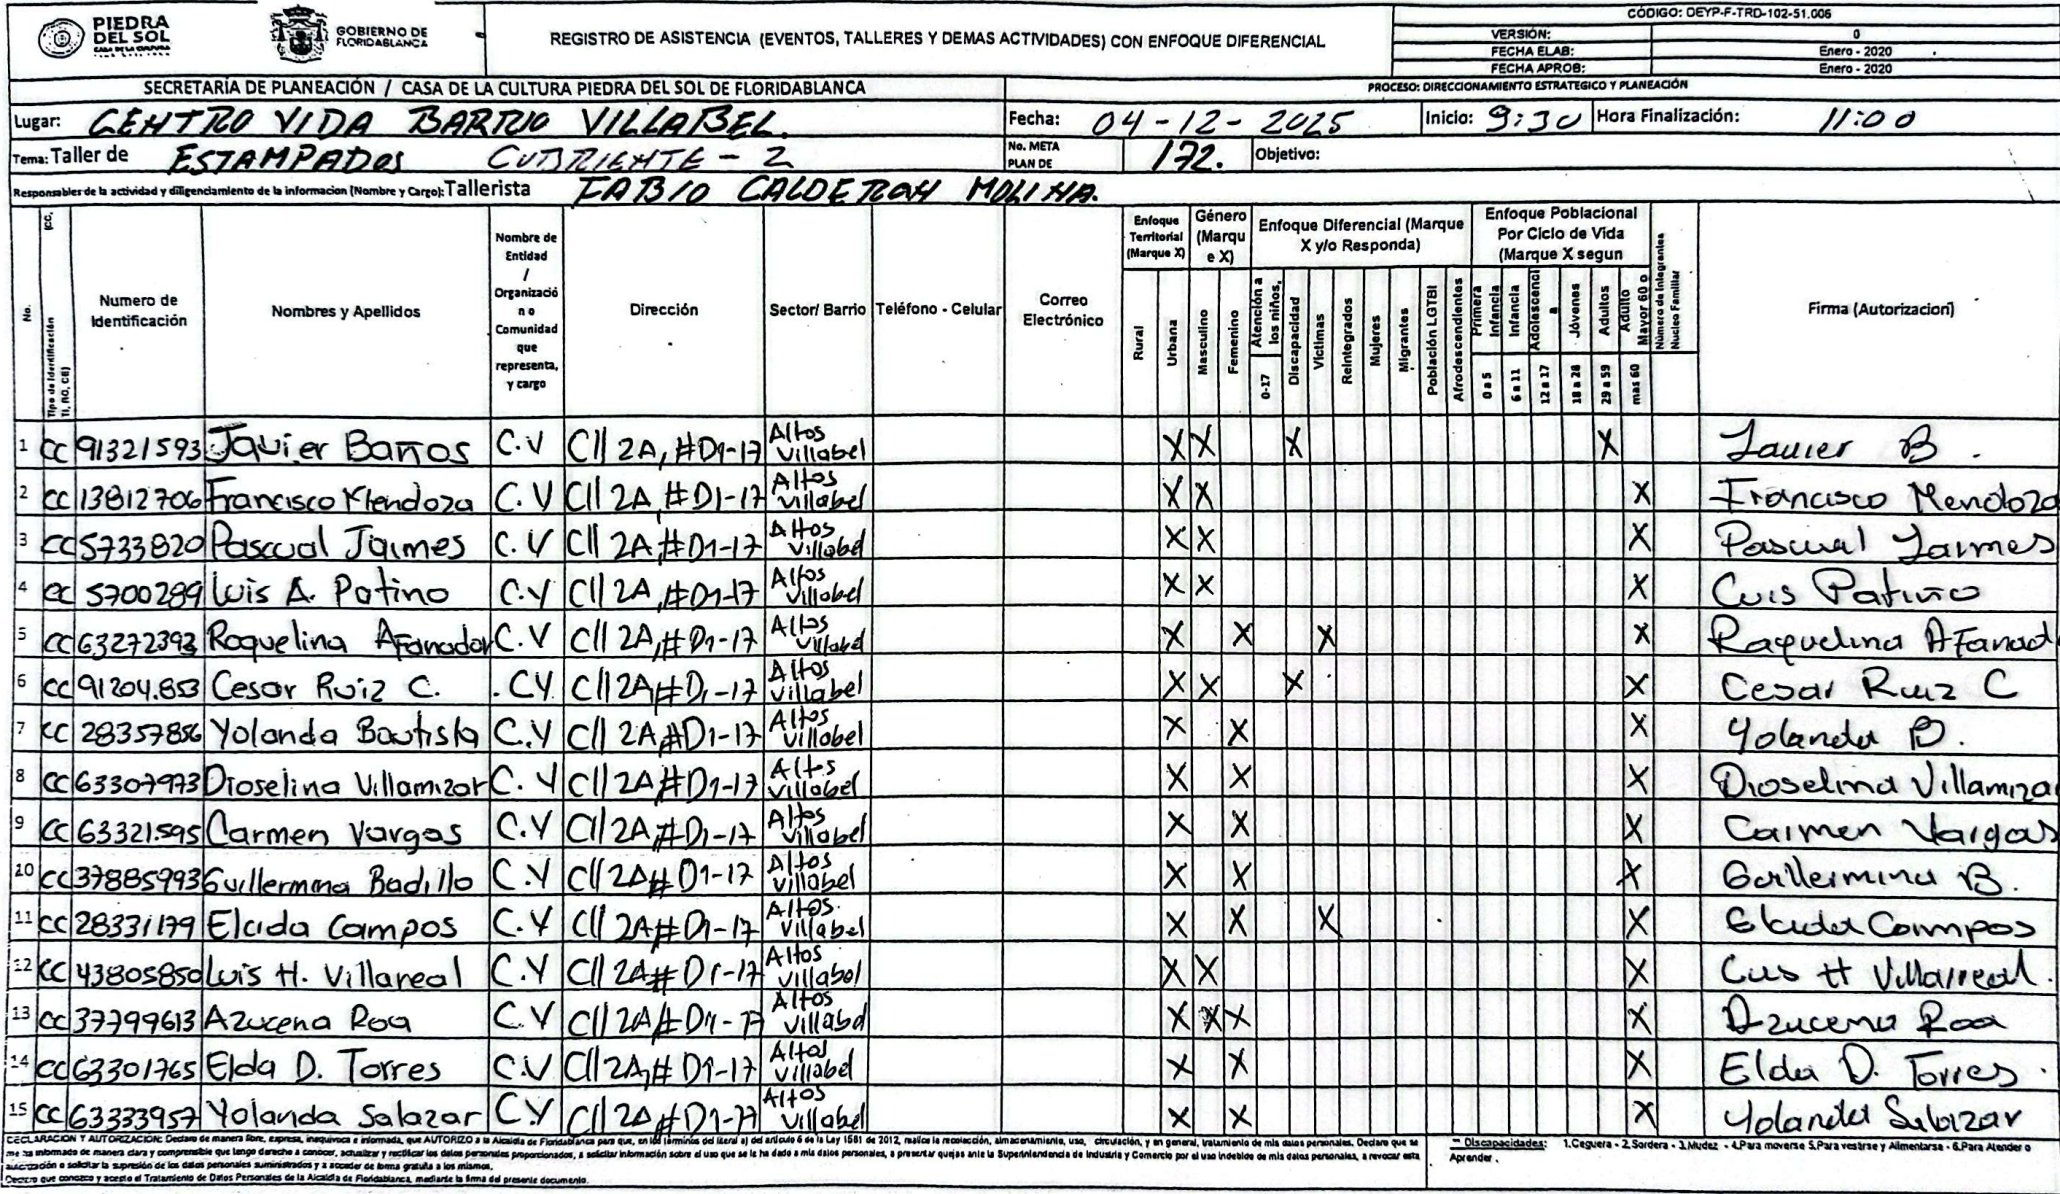 PIEDRA DEL SOL
CASA DE LA CULTURA
GOBIERNO DE FLORIDABLANCA
REGISTRO DE ASISTENCIA (EVENTOS, TALLERES Y DEMAS ACTIVIDADES) CON ENFOQUE DIFERENCIAL
CÓDIGO: DEYP-F-TRD-102-51.006
VERSIÓN: 0
FECHA ELAB: Enero - 2020
FECHA APROB: Enero - 2020
SECRETARÍA DE PLANEACIÓN / CASA DE LA CULTURA PIEDRA DEL SOL DE FLORIDABLANCA
PROCESO: DIRECCIONAMIENTO ESTRATEGICO Y PLANEACIÓN
Lugar: CENTRO VIDA BARRIO VILLABEL. Fecha: 04-12-2025 Inicio: 9:30 Hora Finalización: 11:00
Tema: Taller de ESTAMPADOS CUBRIENTE - 2 No. META PLAN DE 172. Objetivo:
Responsables de la actividad y diligenciamiento de la informacion (Nombre y Cargo): Tallerista FABIO CALDERON MOLINA.
No. Tipo de Identificación (CC, TI, RC, CE) Numero de Identificación Nombres y Apellidos Nombre de Entidad / Organización o Comunidad que representa, y cargo Dirección Sector/ Barrio Teléfono - Celular Correo Electrónico Enfoque Territorial (Marque X) Género (Marque X) Enfoque Diferencial (Marque X y/o Responda) Enfoque Poblacional Por Ciclo de Vida (Marque X segun Número de Integrantes Núcleo Familiar Firma (Autorizacion)
Rural Urbana Masculino Femenino Atención a los niños, Discapacidad Víctimas Reintegrados Mujeres Migrantes Población LGTBI Afrodescendientes Primera Infancia Infancia Adolescencia Jóvenes Adultos Adulto Mayor 60 o
0-17 0 a 5 6 a 11 12 a 17 18 a 28 29 a 59 mas 60
1 CC 91321593 Javier Barros C.V Cll 2A, #D1-17 Altos Villabel X X X X Javier B.
2 CC 13812706 Francisco Mendoza C.V Cll 2A, #D1-17 Altos Villabel X X X Francisco Mendoza
3 CC 5733820 Pascual Jaimes C.V Cll 2A, #D1-17 Altos Villabel X X X Pascual Jaimes
4 CC 5700289 Luis A. Patino C.V Cll 2A, #D1-17 Altos Villabel X X X Luis Patiño
5 CC 63272393 Raquelina Afanador C.V Cll 2A, #D1-17 Altos Villabel X X X X Raquelina Afanad
6 CC 91204.853 Cesar Ruiz C. .CV. Cll 2A, #D1-17 Altos Villabel X X X X Cesar Ruiz C
7 CC 28357856 Yolanda Bautista C.V Cll 2A, #D1-17 Altos Villabel X X X Yolanda B.
8 CC 63307973 Dioselina Villamizar C.V Cll 2A, #D1-17 Altos Villabel X X X Dioselina Villamiza
9 CC 63321.595 Carmen Vargas C.V Cll 2A, #D1-17 Altos Villabel X X X Carmen Vargas
10 CC 37885993 Guillermina Badillo C.V Cll 2A# D1-17 Altos Villabel X X X Guillermina B.
11 CC 28331179 Elcida Campos C.V Cll 2A# D1-17 Altos Villabel X X X X Elcida Campos
12 CC 43805850 Luis H. Villareal C.V Cll 2A# D1-17 Altos Villabel X X X Luis H Villarreal.
13 CC 37799613 Azucena Roa C.V Cll 2A# D1-17 Altos Villabel X X X X Azucena Roa
14 CC 63301765 Elda D. Torres C.V Cll 2A, # D1-17 Altos Villabel X X X Elda D. Torres
15 CC 63333957 Yolanda Salazar C.V Cll 2A #D1-17 Altos Villabel X X X Yolanda Salazar
DECLARACIÓN Y AUTORIZACIÓN: Declaro de manera libre, expresa, inequívoca e informada, que AUTORIZO a la Alcaldía de Floridablanca para que, en los términos del literal a) del artículo 6 de la Ley 1581 de 2012, realice la recolección, almacenamiento, uso, circulación, y en general, tratamiento de mis datos personales. Declaro que se
me ha informado de manera clara y comprensible que tengo derecho a conocer, actualizar y rectificar los datos personales proporcionados, a solicitar información sobre el uso que se le ha dado a mis datos personales, a presentar quejas ante la Superintendencia de Industria y Comercio por el uso indebido de mis datos personales, a revocar esta
autorización o solicitar la supresión de los datos personales suministrados y a acceder de forma gratuita a los mismos.
Declaro que conozco y acepto el Tratamiento de Datos Personales de la Alcaldía de Floridablanca, mediante la firma del presente documento.
Discapacidades: 1.Ceguera - 2.Sordera - 3.Mudez - 4.Para moverse 5.Para vestirse y Alimentarse - 6.Para Atender o Aprender .